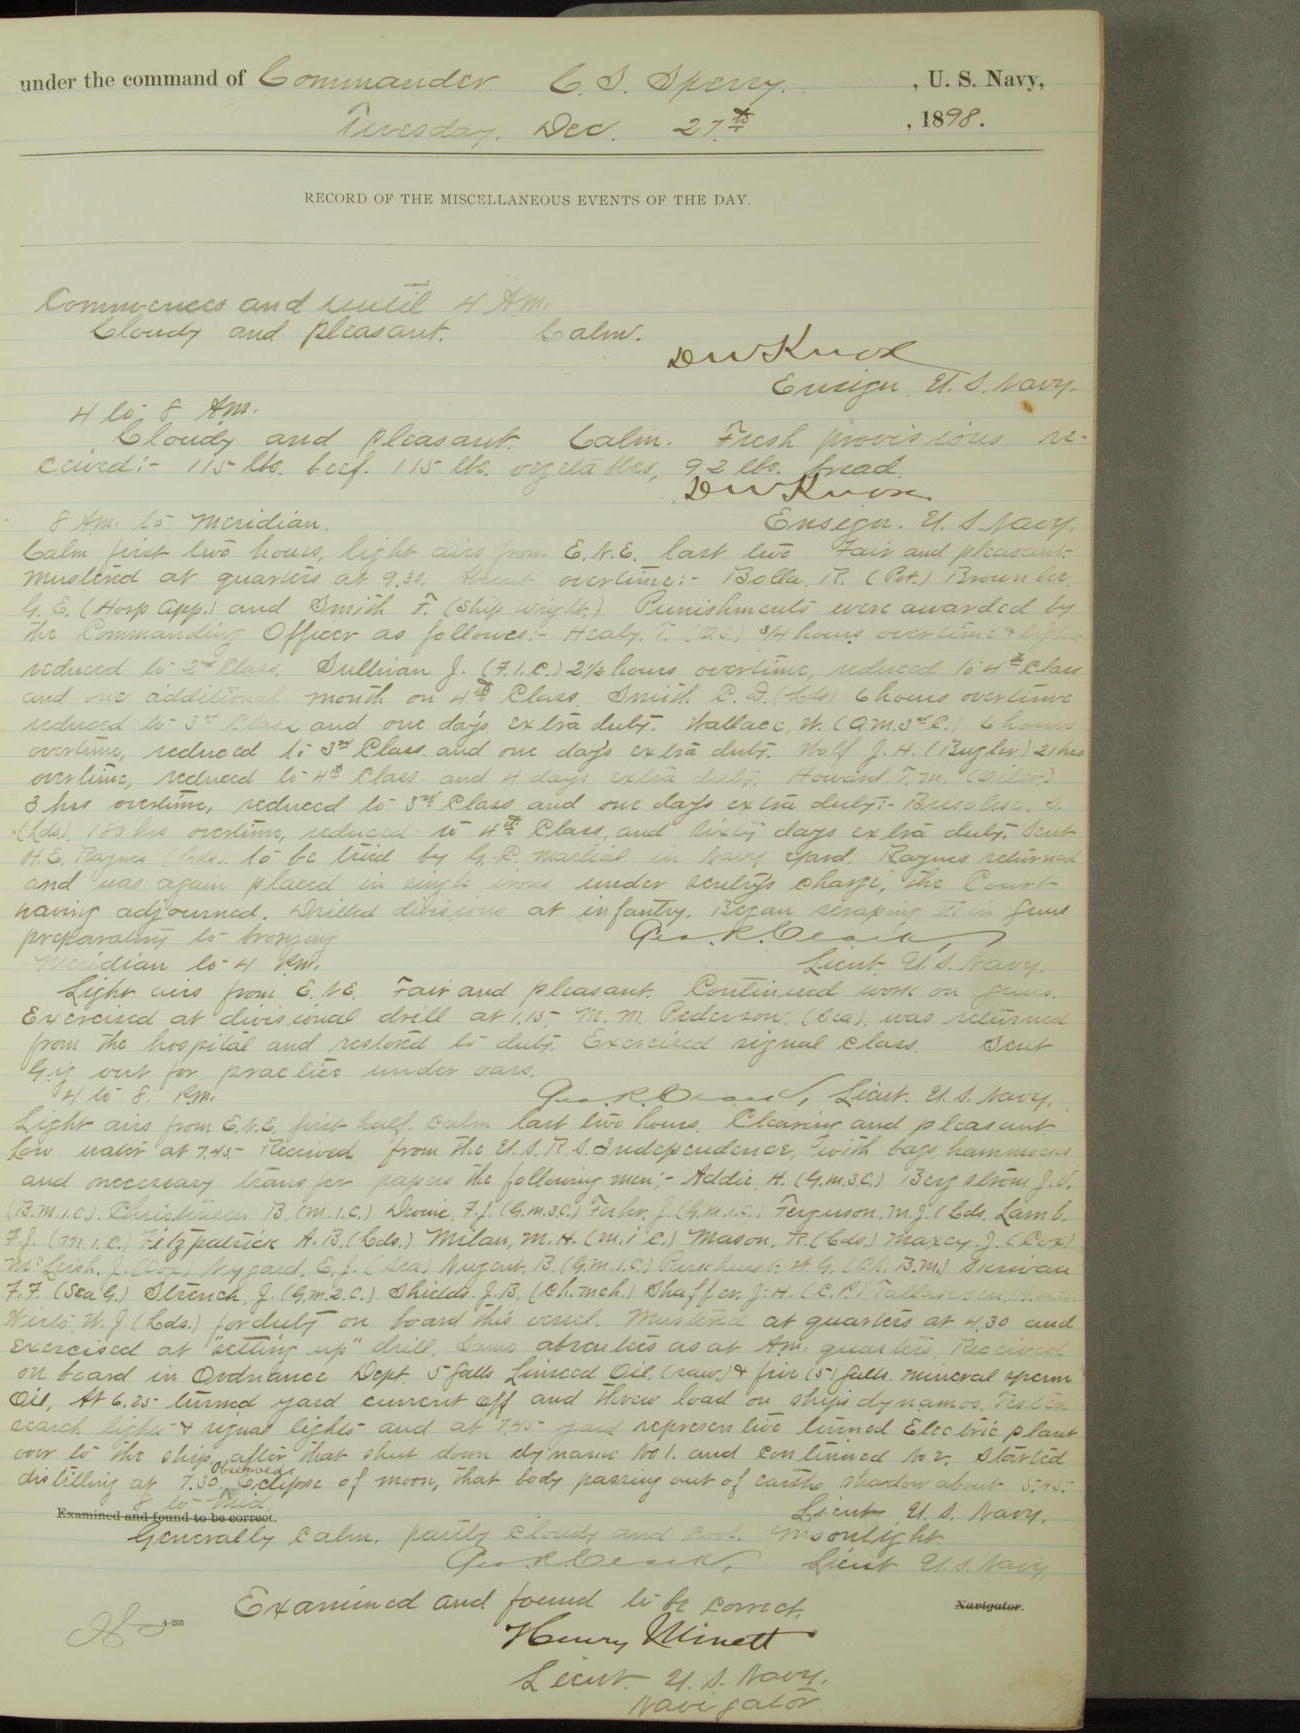 under the command of Commander C. S. Sperry. , U. S. Navy,
Tuesday, Dec. 27th , 1898.
RECORD OF THE MISCELLANEOUS EVENTS OF THE DAY.
Commences and until 4 Am.
Cloudy and pleasant. Calm.
D W Knox
Ensign U. S. Navy.
4 to 8 Am.
Cloudy and pleasant. Calm. Fresh provisions re-
ceived:- 115 lbs. beef. 115 lbs. vegetables, 92 lbs. bread
D W Knox
8 Am. to Meridian. Ensign. U. S. Navy.
Calm first two hours, light airs from E.N.E. last two Fair and pleasant.
Mustered at quarters at 9.30. Absent overtime:- Bolla, R. (Pvt.)
G. E. (Hosp App.) and Smith F. (Shipwright.) Punishments were awarded by
the Commanding Officer as follows:- Healy, T. (O.S.) 3/4 hours overtime
reduced to 2nd Class. Sullivan J. (F.1.C.) 2½ hours overtime, reduced to 4th Class
and one additional month on 4th Class. Smith C. D. (Lds) 6 hours overtime
reduced to 3rd Class and one days extra duty. Wallace, W. (Q.M.3rd C.) 6 hours
overtime, reduced to 3rd Class and one days extra duty. Wolf J. H. (Bugler) 21 hrs
overtime, reduced to 4th Class and 4 days extra duty. Howard T. M. (Oiler)
3 hrs overtime, reduced to 3rd Class and one days extra duty:-
(Lds) hrs overtime, reduced to 4th Class, and days extra duty. Sent
H. E. Raynes (Lds) to be tried by G. C. Martial in Navy Yard. Raynes returned
and was again placed in single irons under sentry's charge, the Court
having adjourned. Drilled divisions at infantry. Began scraping VI in guns
preparatory to bronzing Geo. R. Clark,
Meridian to 4 Pm. Lieut. U. S. Navy.
Light airs from E.N.E. Fair and pleasant. Continued work on guns.
Exercised at divisional drill at 1.15, M. M. Pederson, (Sea), was returned
from the hospital and restored to duty. Exercised signal class. Sent
Gig out for practice under oars.
4 to 8 Pm. Geo. R. Clark, Lieut. U. S. Navy.
Light airs from E.N.E. first half, calm last two hours. Clearing and pleasant
Low water at 7.45 Received from the U. S. R. S. Independence, with bags, hammocks
and necessary transfer papers the following men;- Addie, H. (G.M.3.C.) Bergstrom J. V.
(B.M.1.C.) Christensen B. (M.1.C.) Devine, F. J. (G.M.3.C.) J. (G.M.1.C.) Ferguson, M. J. (Lds. Lamb.
F. J. (M.1.C.) Fitzpatrick A. B. (Lds.) Milan, M. H. (M.1.C.) Mason, R. (Lds) Maxcy, J. (Cox)
J. (Cox) Nygard, E. J. (Sea) Nugent, B. (G.M.1.C.) Parkhurst H. G. (Ch. B.M.)
F. F. (Sea G.) Strench, J. (G.M.2.C.) Shields J. B. (Ch. Mch.) Shaffer, J. H. (C.P.)
W. J. (Lds.) for duty on board this vessel. Mustered at quarters at 4.30 and
exercised at "setting up" drill, same absentees as at Am. quarters. Received
on board in Ordnance Dept. 5 galls Linseed Oil (raw) & five (5) galls. mineral sperm
Oil. At 6.25 turned yard current off and threw load on ships dynamos. Tested
search lights & signal lights and at 7.45 yard representive turned Electric plant
over to the ship, after that shut down dynamo No 1. and continued No 2. Started
distilling at 7.30. Observed Eclipse of moon, that body passing out of earths shadow about 5.45.
8 to Mid. Lieut U. S. Navy.
Examined and found to be correct.
Generally calm, partly cloudy and cool. Moonlight.
Geo R Clark, Lieut U. S. Navy
Examined and found to be correct.
Navigator.
Henry Minett
Lieut. U. S. Navy.
Navigator.